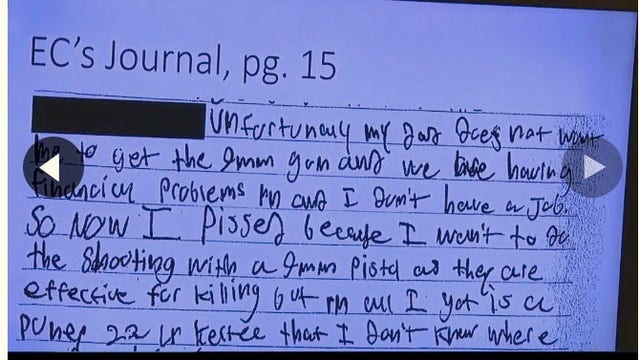 EC's Journal, pg. 15
Unfortunaly my dad does not want
me to get the 9mm gun and we are having
financial problems rn and I don't have a job.
So NOW I Pissed because I want to do
the Shooting with a 9mm Pistol as they are
effective for killing but rn all I got is a
puney 22 lr kestec that I don't know where